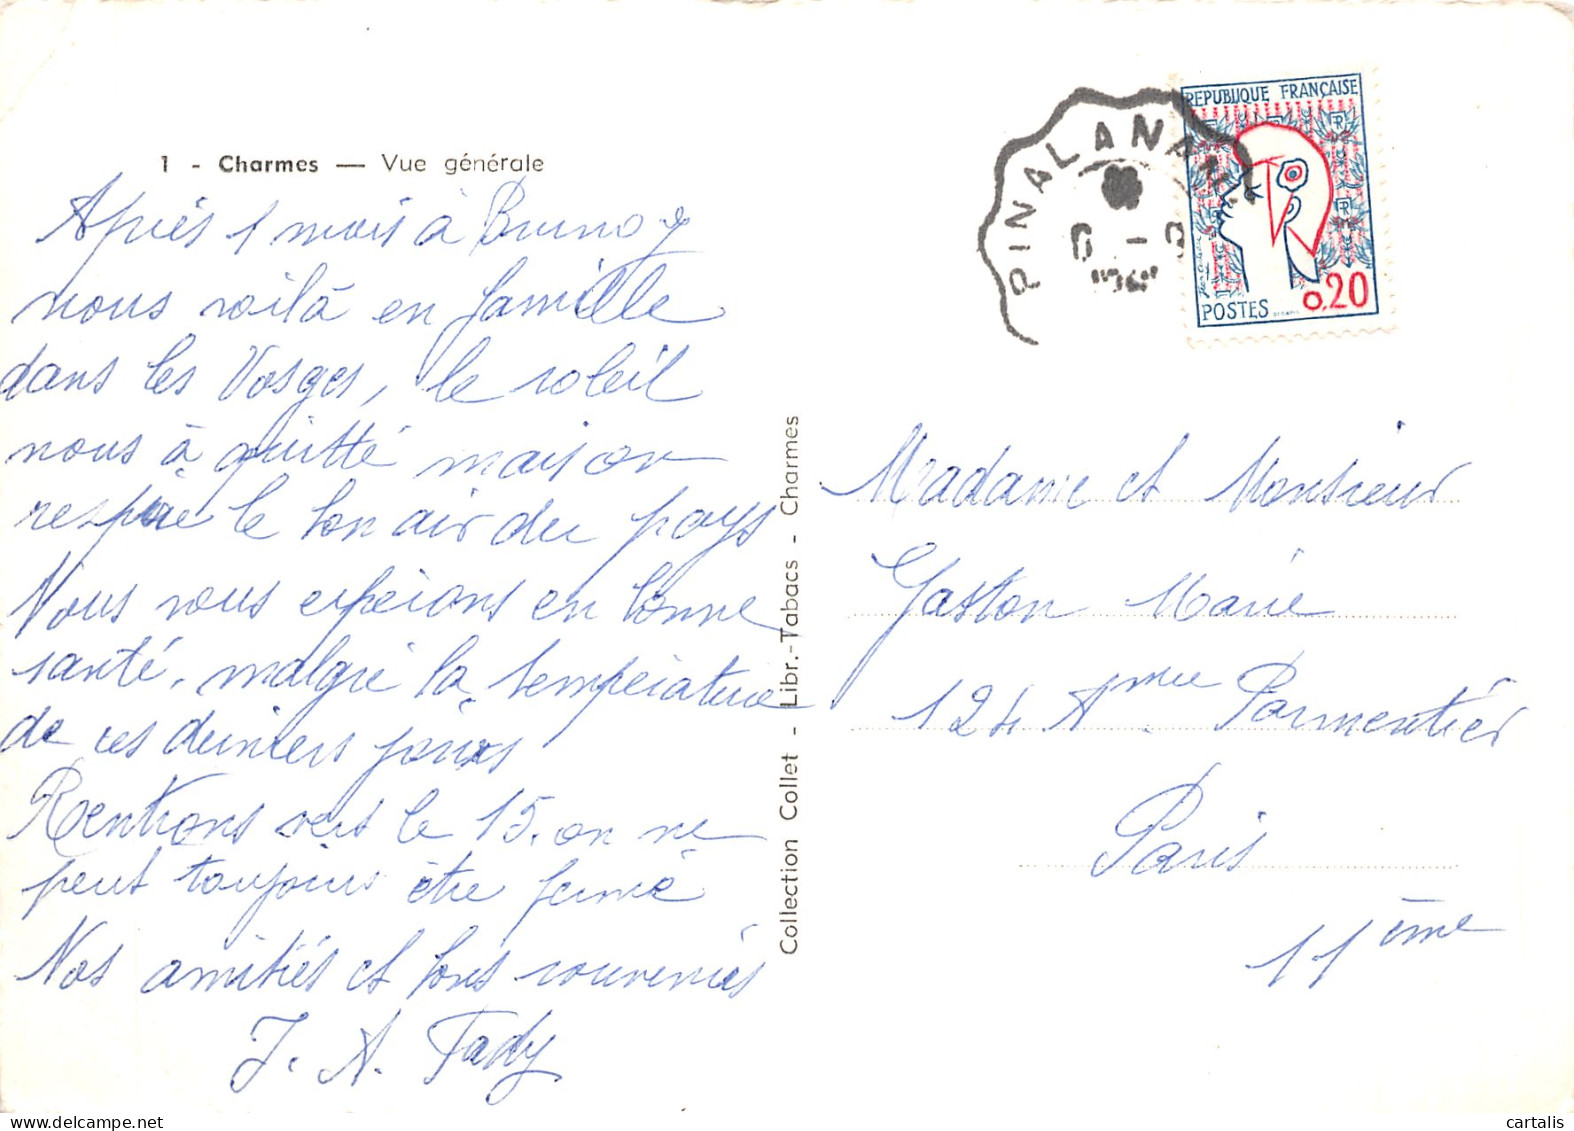 1 - Charmes — Vue générale
Après 1 mois à Brunoy
nous voilà en famille
dans les Vosges, le soleil
nous à quitté mais on
respire le bon air du pays
Nous vous espérons en bonne
santé, malgré la température
de ces derniers jours
Rentrons vers le 15. on ne
peut toujours être fermé
Nos amitiés et bons souvenirs
J. A. Fady
Collection Collet - Libr.-Tabacs - Charmes
PINAL A NAN
REPUBLIQUE FRANÇAISE
RF
RF
POSTES
0,20
Madame et Monsieur
Gaston Marie
124 Anue Parmentier
Paris
11ème
cartalis.com